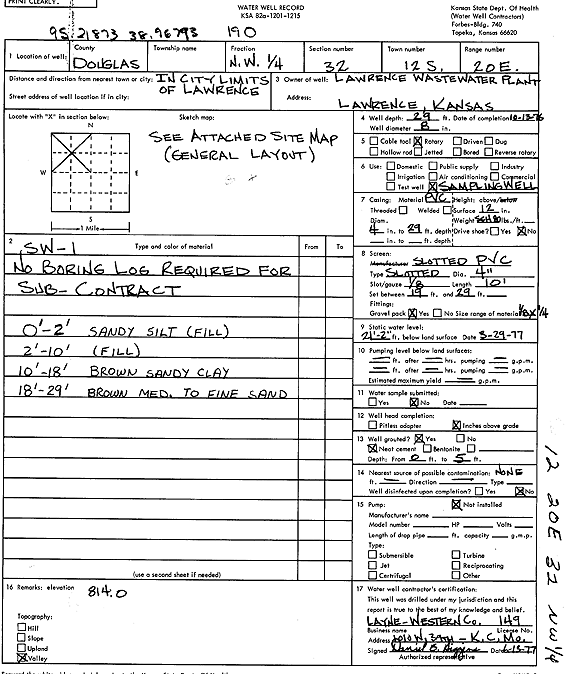 PRINT CLEARLY.
WATER WELL RECORD
KSA 82a-1201-1215
Kansas State Dept. Of Health
(Water Well Contractors)
Forbes-Bldg. 740
Topeka, Kansas 66620
95.21873 38.96793 190
1 Location of well: County DOUGLAS Township name Fraction N.W. 1/4 Section number 32 Town number 12 S. Range number 20 E.
Distance and direction from nearest town or city: IN CITY LIMITS OF LAWRENCE
Street address of well location if in city:
3 Owner of well: LAWRENCE WASTEWATER PLANT
Address: LAWRENCE, KANSAS
Locate with "X" in section below:
N
W E
S
1 Mile
Sketch map:
SEE ATTACHED SITE MAP
(GENERAL LAYOUT)
4 Well depth: 29 ft. Date of completion 10-13-76
Well diameter 8 in.
5 Cable tool Rotary Driven Dug
Hollow rod Jetted Bored Reverse rotary
6 Use: Domestic Public supply Industry
Irrigation Air conditioning Commercial
Test well SAMPLING WELL
7 Casing: Material PVC Height: above/below
Threaded Welded Surface 12 in.
Diam. Weight SCH 80 lbs./ft.
4 in. to 29 ft. depth Drive shoe? Yes No
in. to ft. depth
2 SW-1 Type and color of material From To
NO BORING LOG REQUIRED FOR
SUB-CONTRACT
0'-2' SANDY SILT (FILL)
2'-10' (FILL)
10'-18' BROWN SANDY CLAY
18'-29' BROWN MED. TO FINE SAND
(use a second sheet if needed)
8 Screen:
Manufacturer SLOTTED PVC
Type SLOTTED Dia. 4"
Slot/gauze 1/8 Length 10'
Set between 19 ft. and 29 ft.
Fittings:
Gravel pack Yes No Size range of material 1/8 x 1/4
9 Static water level:
21'-2" ft. below land surface Date 3-29-77
10 Pumping level below land surfaces:
ft. after hrs. pumping g.p.m.
ft. after hrs. pumping g.p.m.
Estimated maximum yield g.p.m.
11 Water sample submitted:
Yes No Date
12 Well head completion:
Pitless adapter Inches above grade
13 Well grouted? Yes No
Neat cement Bentonite
Depth: From 0 ft. to 5 ft.
14 Nearest source of possible contamination: NONE
ft. Direction Type
Well disinfected upon completion? Yes No
15 Pump: Not installed
Manufacturer's name
Model number HP Volts
Length of drop pipe ft. capacity g.m.p.
Type:
Submersible Turbine
Jet Reciprocating
Centrifugal Other
16 Remarks: elevation 814.0
Topography:
Hill
Slope
Upland
Valley
17 Water well contractor's certification:
This well was drilled under my jurisdiction and this
report is true to the best of my knowledge and belief.
LAYNE-WESTERN CO. 149
Business name License No.
Address 1010 W. 39TH - K.C. MO.
Signed Date 6-13-77
Authorized representative
12 20E 32 NW 1/4